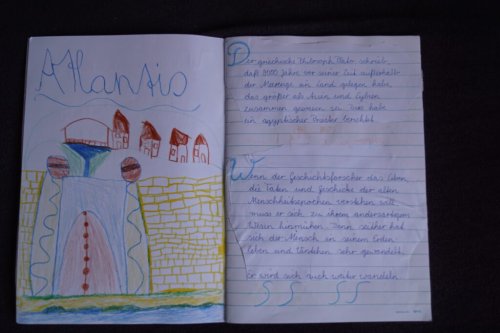 Atlantis
Der griechische Philosoph Plato schrieb,
daß 9000 Jahre vor seiner Zeit außerhalb
der Meerenge ein Land gelegen habe,
das größer als Asien und Lybien
zusammen gewesen sei. Dies habe
ein ägyptischer Priester berichtet.
Wenn der Geschichtsforscher das Leben,
die Taten und Geschicke der alten
Menschheitsepochen verstehen will
muss er sich zu ihrem andersartigen
Wesen hinmühen. Denn seither hat
sich der Mensch in seinem Erden-
leben und Verstehen sehr gewandelt.
Er wird sich auch weiter wandeln.